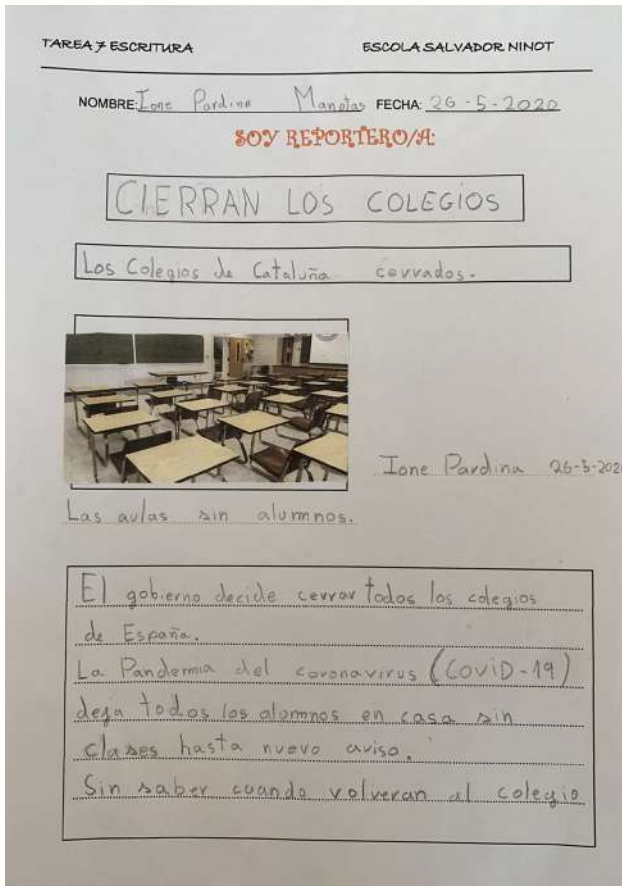 TAREA 7 ESCRITURA ESCOLA SALVADOR NINOT
NOMBRE: Ione Pardina Manotas FECHA: 26-5-2020
SOY REPORTERO/A:
CIERRAN LOS COLEGIOS
Los Colegios de Cataluña cerrados.
Ione Pardina 26-5-202
Las aulas sin alumnos.
El gobierno decide cerrar todos los colegios
de España.
La Pandemia del coronavirus (COViD-19)
deja todos los alomnos en casa sin
clases hasta nuevo aviso.
Sin saber cuando volveran al colegio